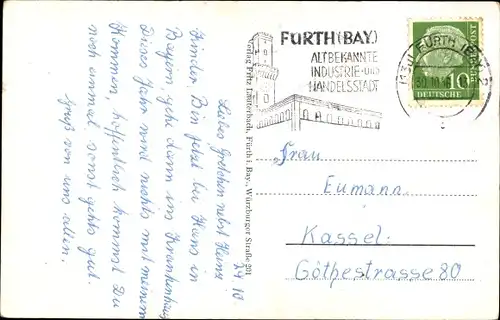 24.10
Liebes Gretchen nebst Heinz
Kinder. Bin jetzt bei Hans in
Bayern, gehe dann ins Krankenhaus
Dieses Jahr wird nichts mit meinem
Kommen, hoffentlich kommst Du
noch einmal sonst gehts gut.
Gruß von uns allen.
Verlag Fritz Lauterbach, Fürth i. Bay., Würzburger Straße 201
FÜRTH (BAY)
ALTBEKANNTE
INDUSTRIE- UND
HANDELSSTADT
(13a) FÜRTH (BAY) 2
10
DEUTSCHE
BUNDESPOST
Frau
Eumann.
Kassel.
Göthestrasse 80